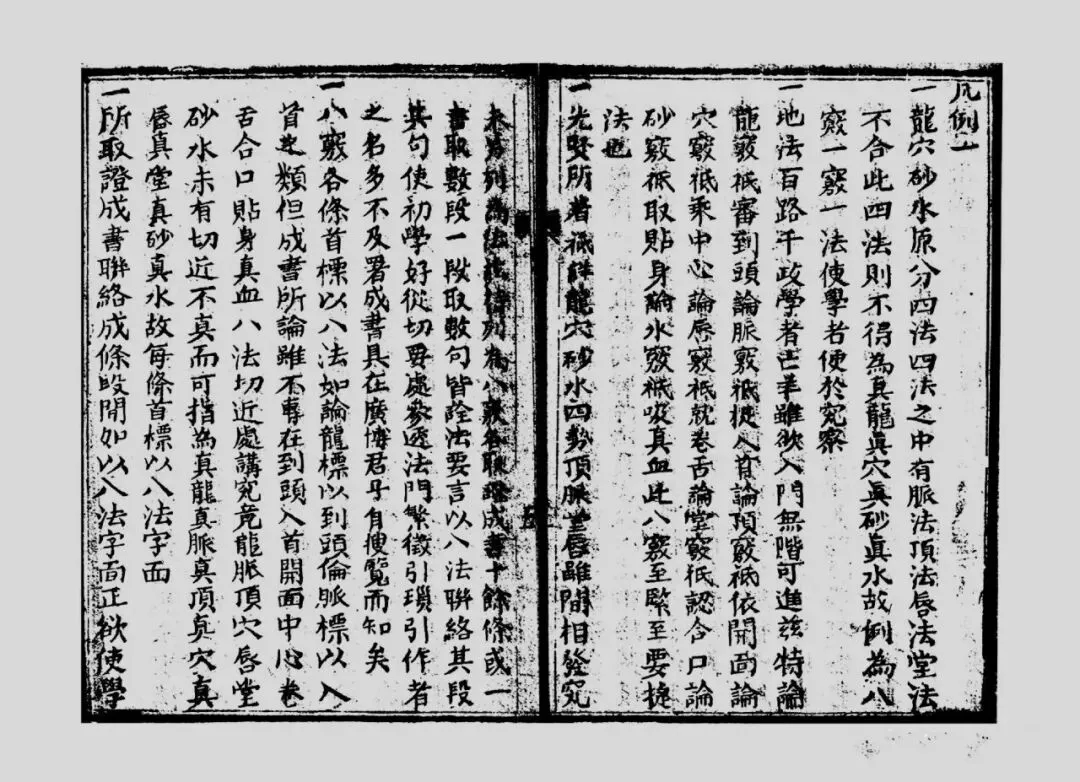 凡例一
一龍穴砂水原分四法四法之中有脈法頂法唇法堂法
不合此四法則不得為真龍眞穴眞砂眞水故例為八
竅一竅一法使學者便於究察
一地法百路千政學者亡羊雖欲入門無階可進兹特論
龍竅祗審到頭論脈竅祗從入首論頂竅祗依開面論
穴竅祗乘中心論唇竅祗枕卷舌論堂竅祗認合口論
砂竅祗取貼身論水竅祗吸真血此八竅至緊至要捷
法也
一先賢所著祗詳龍穴砂水四勢頂脈堂唇雖間相發究
未列為法列為八竅各取證成書十餘條或一
書取數段一段取數句皆詮法要言以八法聯絡其段
其句使初學好從切要處參透法門繁徵引瑣引作者
之名多不及署成書具在廣博君子自搜覧而知矣
一八竅各條首標以八法如論龍標以到頭倫脈標以入
首之類但成書所論雖不專在到頭入首開面中心卷
舌合口貼身真血八法切近處講究究竟龍脈頂穴唇堂
砂水未有切近不真而可指為真龍真脈真頂真穴真
唇真堂真砂真水故每條首標以八法字面
一所取證成書聯絡成條段間如以八法字面正欲使學